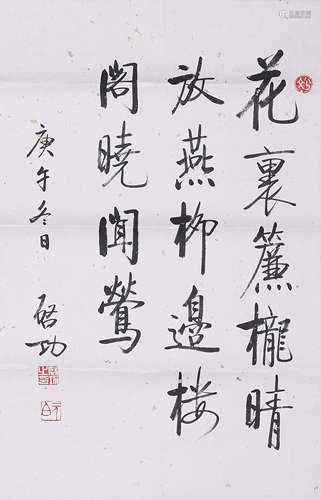 花裏簾櫳晴
放燕柳邊楼
閣曉聞鶯
庚午冬日
啓功